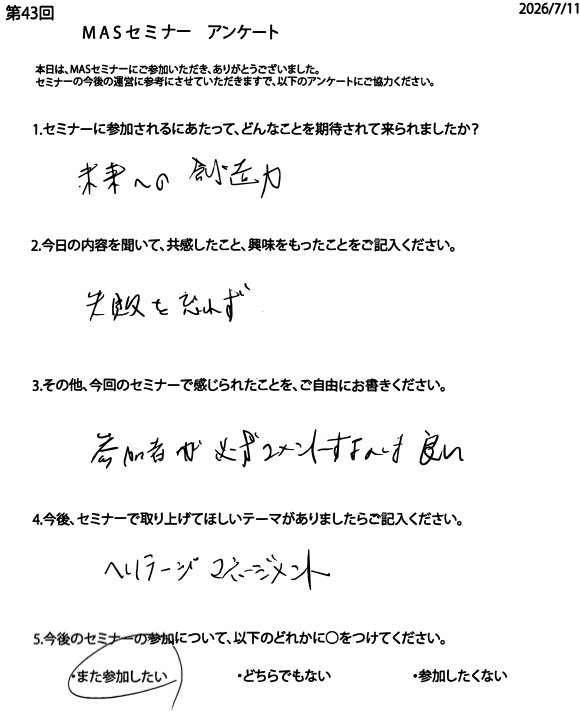 第43回
2026/7/11
MASセミナー アンケート
本日は、MASセミナーにご参加いただき、ありがとうございました。
セミナーの今後の運営に参考にさせていただきますで、以下のアンケートにご協力ください。
1.セミナーに参加されるにあたって、どんなことを期待されて来られましたか？
未来への 創造力
2.今日の内容を聞いて、共感したこと、興味をもったことをご記入ください。
失敗を恐れず
3.その他、今回のセミナーで感じられたことを、ご自由にお書きください。
参加者が 必ずコメントするのは 良い
4.今後、セミナーで取り上げてほしいテーマがありましたらご記入ください。
ヘリテージ マネージメント
5.今後のセミナーの参加について、以下のどれかに○をつけてください。
・また参加したい ・どちらでもない ・参加したくない